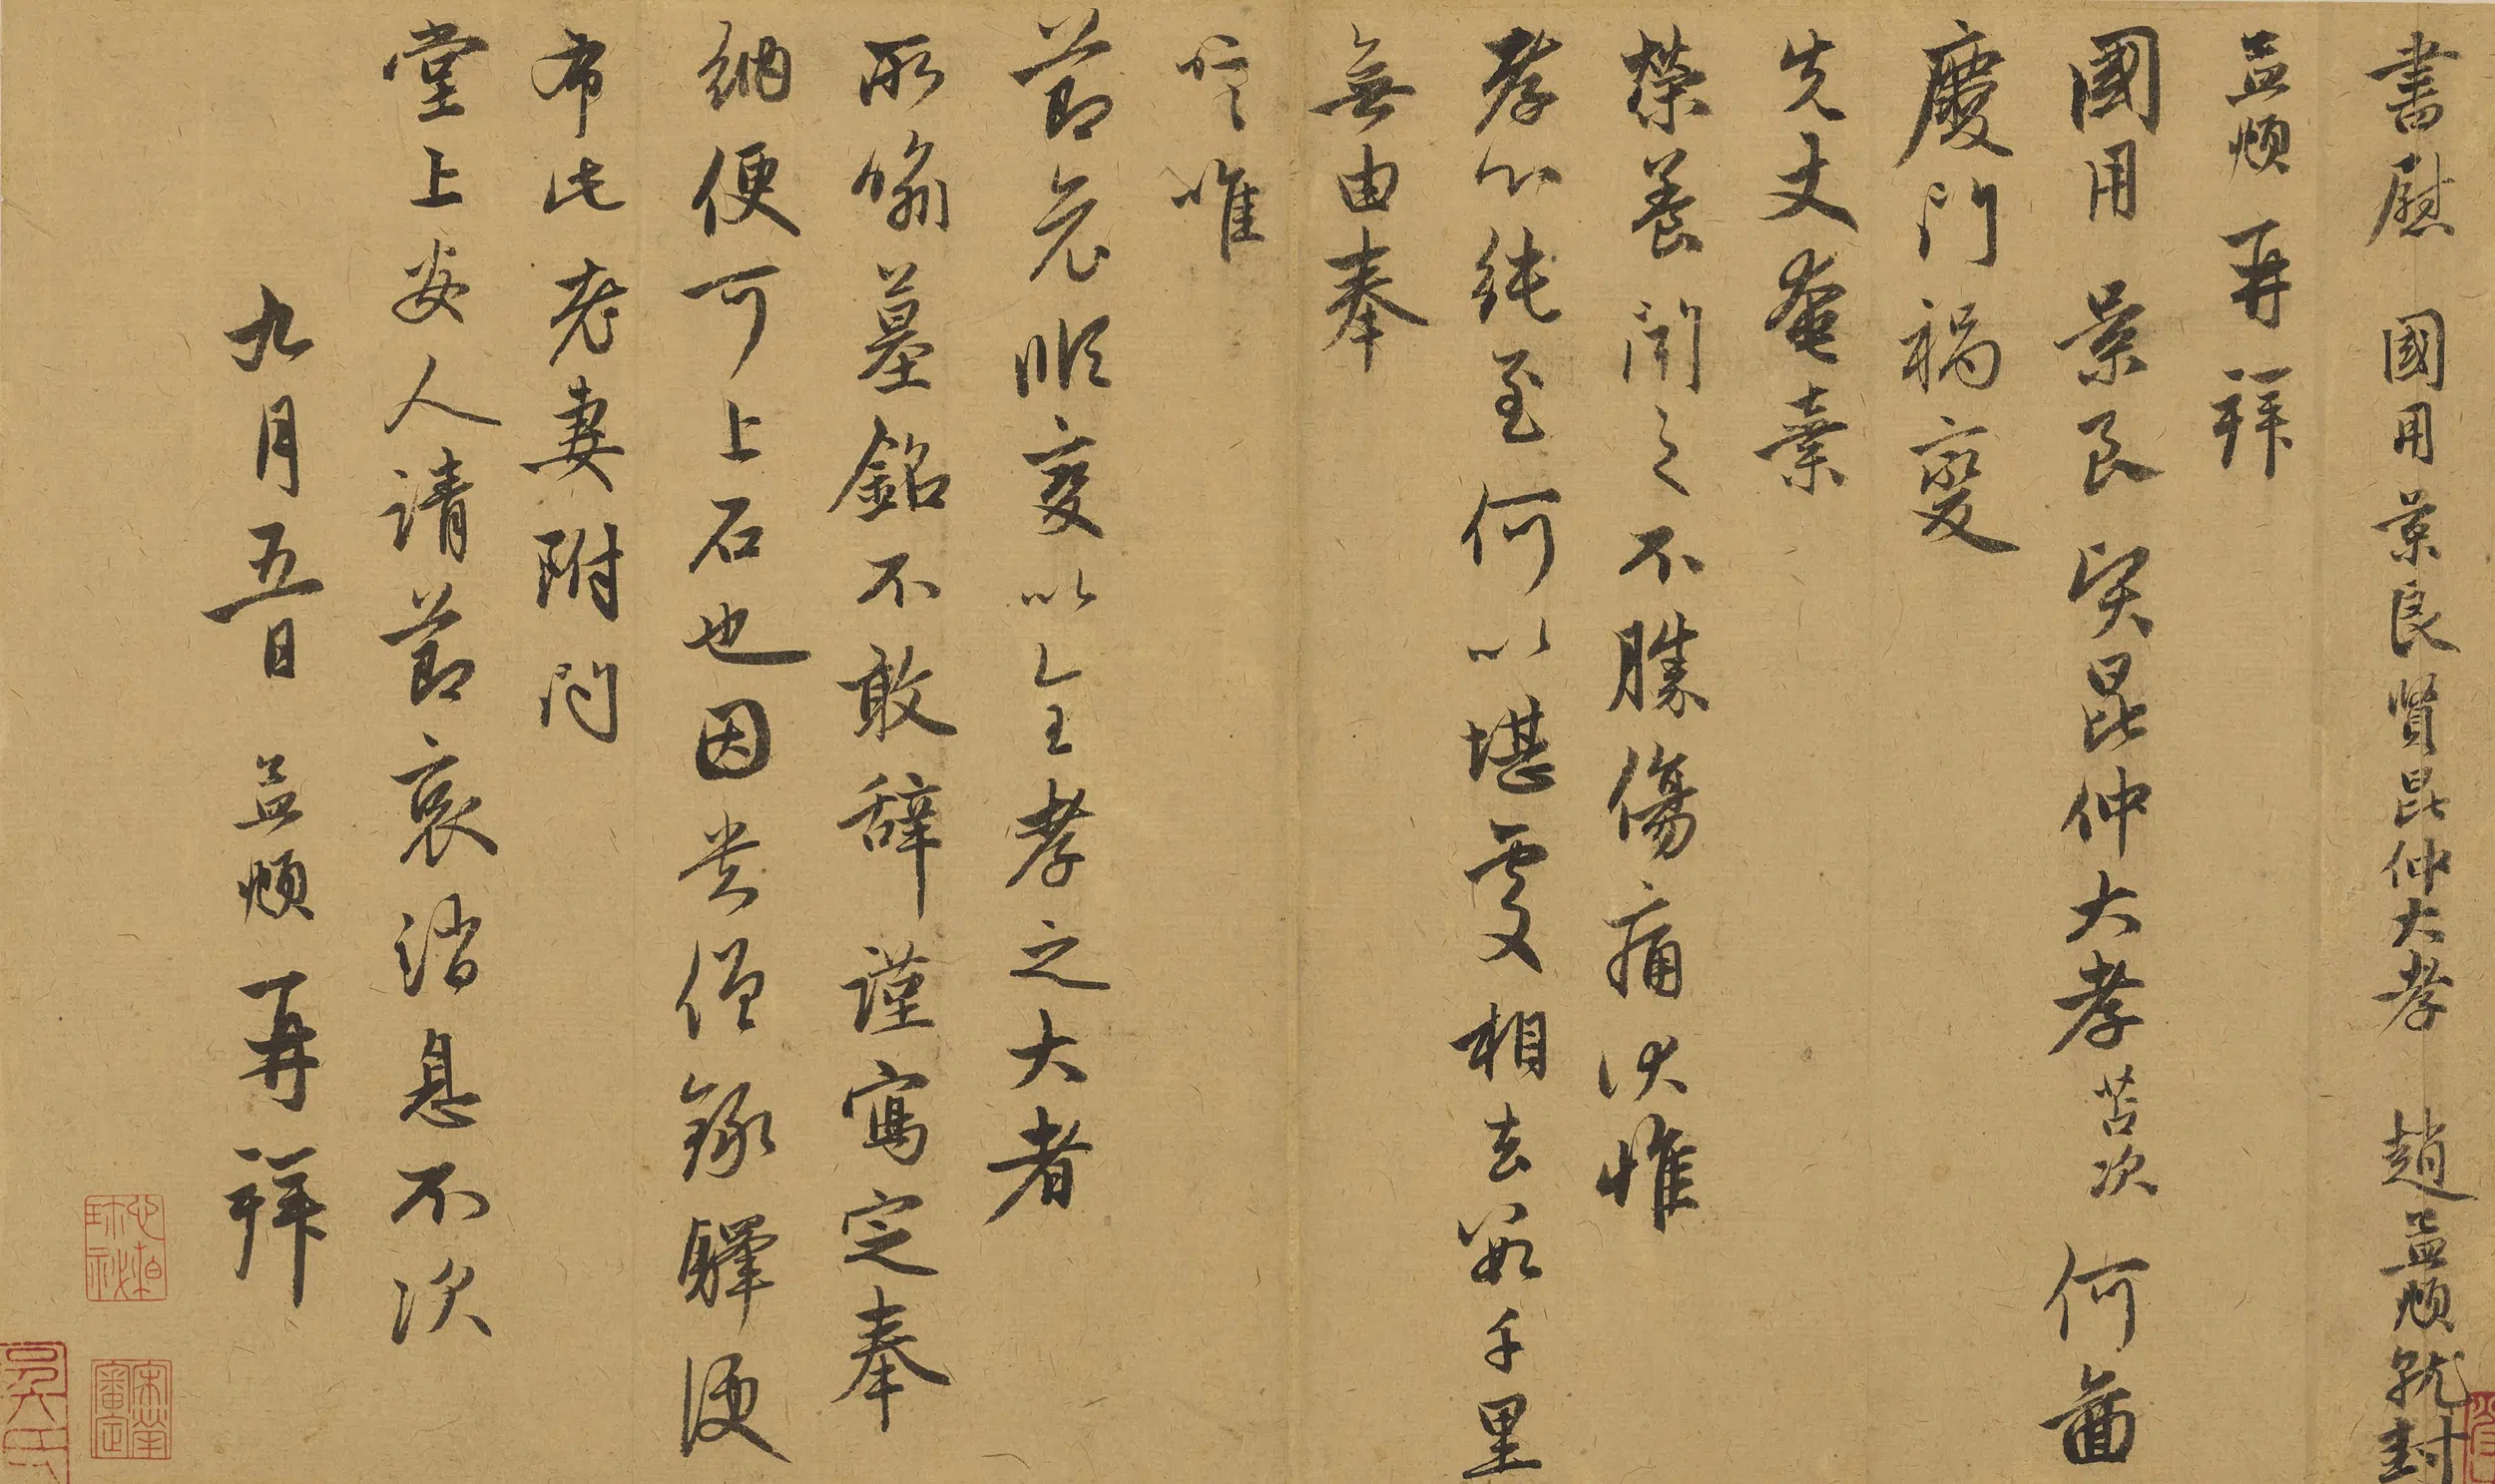 書慰 國用景良賢昆仲大孝 趙孟頫就封
孟頫再拜
國用景良賢昆仲大孝苫次何啚
慶門禍變
先丈奄棄
榮養聞之不勝傷痛伏惟
孝心純至何以堪處相去數千里
無由奉
唁唯
節哀順變以全孝之大者
所喻墓銘不敢辞謹寫定奉
納便可上石也因贵僧錄驛便
布此老妻附問
堂上安人請節哀諸息不次
九月五日 孟頫再拜